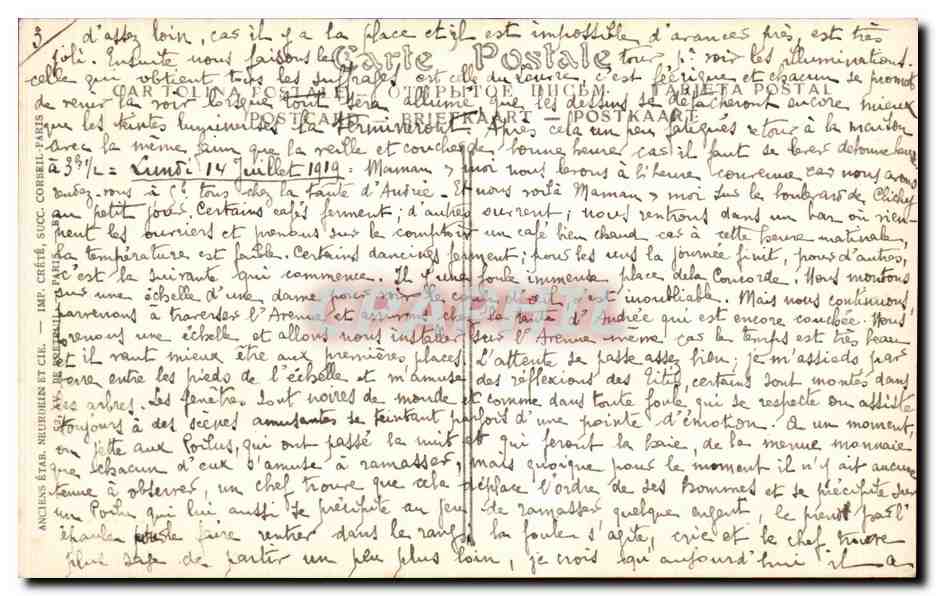 3
d'assez loin, car il y a la place et il est impossible d'avancer près, est très
joli. Ensuite nous faisons le tour pr voir les illuminations.
Carte Postale
celle qui obtient tous les suffrages est celle du Louvre, c'est féérique et chacun se promet
CARTOLINA POSTALE — ОТКРЫТОЕ ПИСЬМО — TARJETA POSTAL
de venir la voir lorsque tout sera allumé, que les dessins se détacheront encore mieux
POSTCARD — BRIEFKAART — POSTKAART
que les teintes lumineuses la termineront. Après cela un peu fatigués retour à la maison
avec la même faim que la veille et coucher de bonne heure car il faut se lever de bonne heure
à 3h 1/2 = Lundi 14 Juillet 1919 = Maman & moi nous levons à l'heure convenue car nous avons
rendez-vous à 5h tous chez la tante d'Andrée - Et nous voilà Maman & moi sur le boulevard de Clichy
au petit jour. Certains cafés ferment; d'autres ouvrent; nous rentrons dans un bar où vien-
nent les ouvriers et prenons sur le comptoir un café bien chaud car à cette heure matinale,
la température est faible. Certains dancings ferment; pour les uns la journée finit, pour d'autres,
c'est la suivante qui commence. Il y a une foule immense place de la Concorde. Nous montons
sur une échelle d'une dame pour voir le coup d'œil, c'est inoubliable. Mais nous continuons
parvenons à traverser l'Avenue et arrivons chez la tante d'Andrée qui est encore couchée. Nous
prenons une échelle et allons nous installer sur l'Avenue même car le temps est très beau
et il vaut mieux être aux premières places. L'attente se passe assez bien; je m'assieds par
terre entre les pieds de l'échelle et m'amuse des réflexions des titis, certains sont montés dans
les arbres. Les fenêtres sont noires de monde et comme dans toute foule qui se respecte on assiste
toujours à des scènes amusantes se teintant parfois d'une pointe d'émotion. A un moment,
on jette aux Poilus, qui ont passé la nuit et qui feront la haie, de la menue monnaie
que chacun d'eux s'amuse à ramasser, mais quoique pour le moment il n'y ait aucune
tenue à observer, un chef trouve que cela déplace l'ordre de ses hommes et se précipite sur
un Poilu qui lui aussi se précipite au jeu de ramasser quelque argent, le prend par l'
épaule pour le faire rentrer dans le rang, la foule s'agite, crie et le chef trouve
plus sage de partir un peu plus loin, je crois qu'aujourd'hui il a
ANCIENS ÉTAB. NEURDEIN ET CIE. — IMP. CRÉTÉ, SUCC. CORBEIL-PARIS
AV. DE BRETEUIL, PARIS